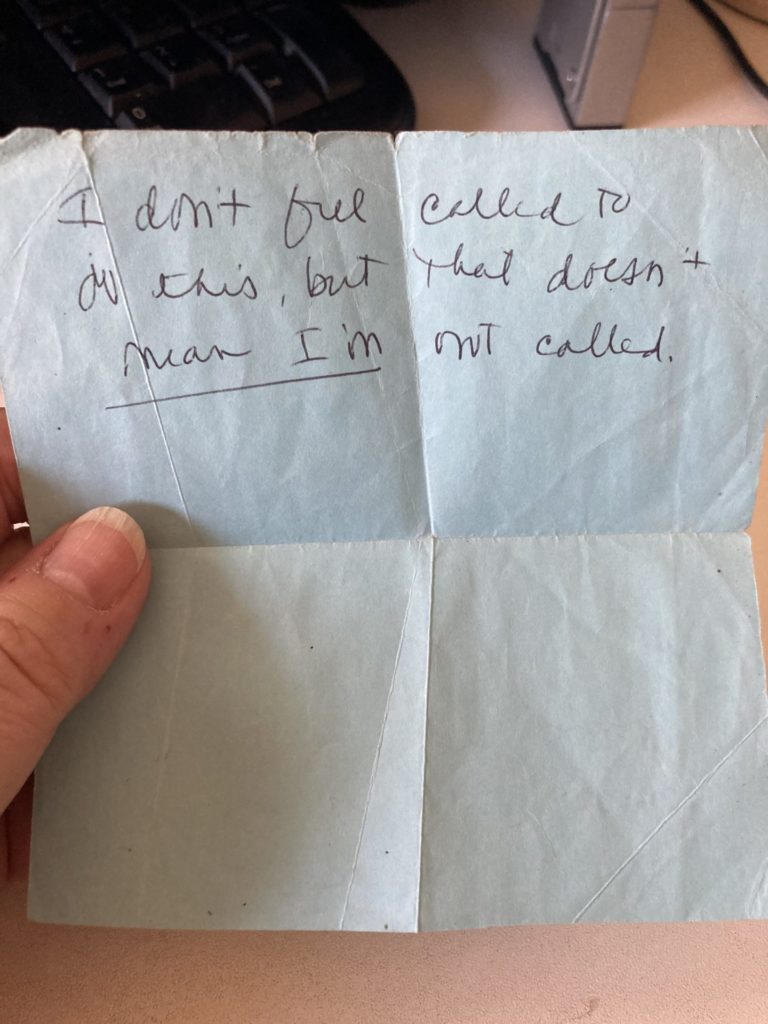 I don't feel called to
do this, but that doesn't
mean I'm not called.